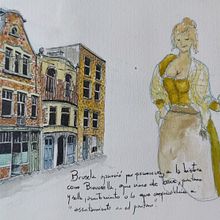 Brusela apareció por primera vez en la historia
como Bruocsella, que viene de broek, pantano
y sella, asentamiento o lo que
"asentamiento en el pantano".